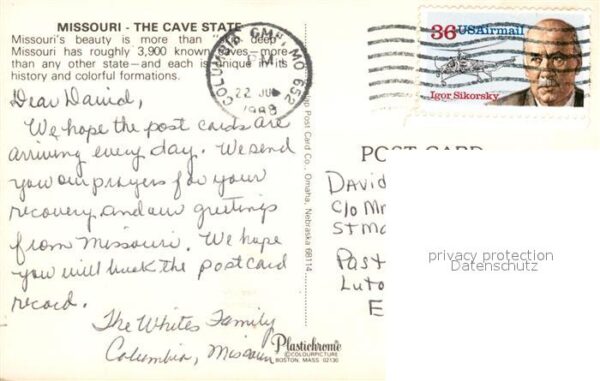 MISSOURI - THE CAVE STATE
Missouri's beauty is more than deep
Missouri has roughly 3,900 known caves—more
than any other state—and each is unique in its
history and colorful formations.
Dear David,
We hope the post cards are
arriving every day. We send
you our prayers for your
recovery, and our greetings
from Missouri. We hope
you will break the postcard
record.
The Whites Family
Columbia, Missouri
COLUMBIA GMF, MO 652
PM
22
36 USAirmail
Igor Sikorsky
Post Card Co., Omaha, Nebraska 68114
POST CARD
David
C/O
St
privacy protection
Datenschutz
Past
Luto
E
Plastichrome
©COLOURPICTURE
BOSTON, MASS 02130